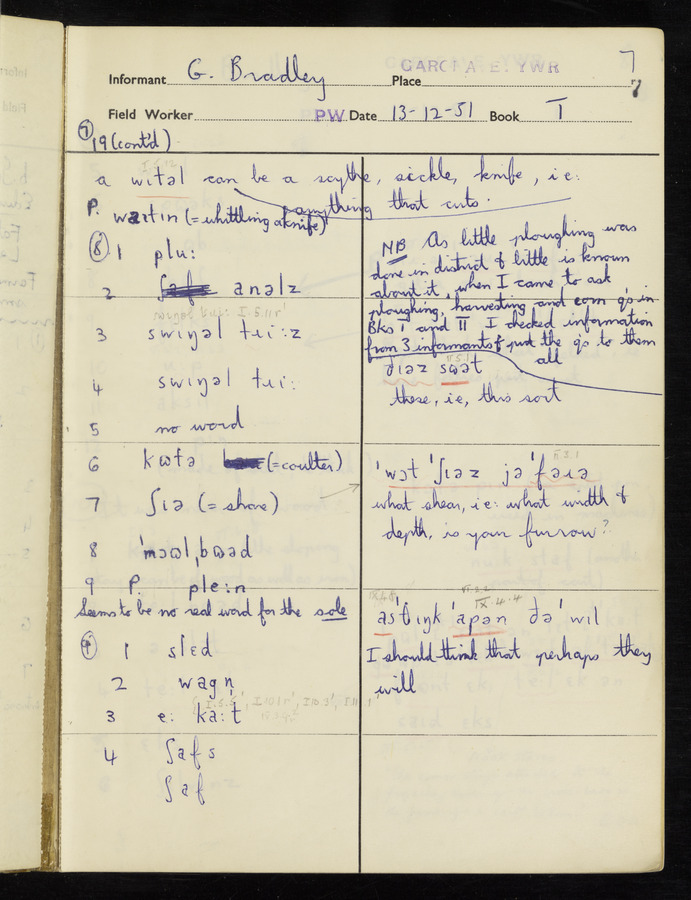 GARGRAVE, YWR 7
Informant G. Bradley Place 7
Field Worker PW Date 13-12-51 Book I
⑦ 19 (cont'd)
a wɪtəl can be a scythe, sickle, knife, i.e.
anything that cuts.
P. (= whittling a knife)
⑧ 1 plu:
2 analz
3 swɪŋəl tɹi:z
4 swɪŋəl tɹi:
5 no word
6 kʊtə (= coulter)
7 ʃɪə (= share)
8
9 P. ple:n
Seems to be no real word for the sole
⑨ 1 slɛd
2 wagn̩
3 e: ka:t
4 ʃafs
ʃaf
NB As little ploughing was
done in district & little is known
about it, when I came to ask
ploughing, harvesting and corn q's in
Bks I and II I checked information
from 3 informants & put the q's to them
all
ðɪəz sɒət
these, i.e., this sort
'wɒt 'ʃɪəz jə 'fəɹə
what shear, i.e. what width &
depth, is your furrow?
IX.4.4
as 'θɪŋk 'apən ðə 'wɪl
I should think that perhaps they
will